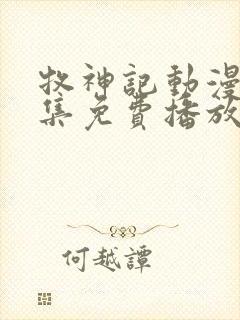 牧神記動漫
集免費播放
何越譚